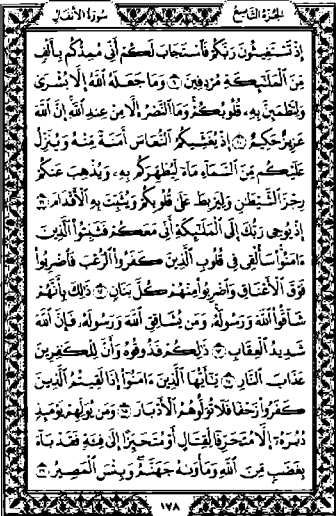 الجزء التاسع سورة الأنفال
إِذْ تَسْتَغِيثُونَ رَبَّكُمْ فَاسْتَجَابَ لَكُمْ أَنِّي مُمِدُّكُم بِأَلْفٍ
مِّنَ الْمَلَائِكَةِ مُرْدِفِينَ ٩ وَمَا جَعَلَهُ اللَّهُ إِلَّا بُشْرَىٰ
وَلِتَطْمَئِنَّ بِهِ قُلُوبُكُمْ وَمَا النَّصْرُ إِلَّا مِنْ عِندِ اللَّهِ إِنَّ اللَّهَ
عَزِيزٌ حَكِيمٌ ١٠ إِذْ يُغَشِّيكُمُ النُّعَاسَ أَمَنَةً مِّنْهُ وَيُنَزِّلُ
عَلَيْكُم مِّنَ السَّمَاءِ مَاءً لِّيُطَهِّرَكُم بِهِ وَيُذْهِبَ عَنكُمْ
رِجْزَ الشَّيْطَانِ وَلِيَرْبِطَ عَلَىٰ قُلُوبِكُمْ وَيُثَبِّتَ بِهِ الْأَقْدَامَ ١١
إِذْ يُوحِي رَبُّكَ إِلَى الْمَلَائِكَةِ أَنِّي مَعَكُمْ فَثَبِّتُوا الَّذِينَ
ءَامَنُوا سَأُلْقِي فِي قُلُوبِ الَّذِينَ كَفَرُوا الرُّعْبَ فَاضْرِبُوا
فَوْقَ الْأَعْنَاقِ وَاضْرِبُوا مِنْهُمْ كُلَّ بَنَانٍ ١٢ ذَٰلِكَ بِأَنَّهُمْ
شَاقُّوا اللَّهَ وَرَسُولَهُ وَمَن يُشَاقِقِ اللَّهَ وَرَسُولَهُ فَإِنَّ اللَّهَ
شَدِيدُ الْعِقَابِ ١٣ ذَٰلِكُمْ فَذُوقُوهُ وَأَنَّ لِلْكَافِرِينَ
عَذَابَ النَّارِ ١٤ يَا أَيُّهَا الَّذِينَ ءَامَنُوا إِذَا لَقِيتُمُ الَّذِينَ
كَفَرُوا زَحْفًا فَلَا تُوَلُّوهُمُ الْأَدْبَارَ ١٥ وَمَن يُوَلِّهِمْ يَوْمَئِذٍ
دُبُرَهُ إِلَّا مُتَحَرِّفًا لِّقِتَالٍ أَوْ مُتَحَيِّزًا إِلَىٰ فِئَةٍ فَقَدْ بَاءَ
بِغَضَبٍ مِّنَ اللَّهِ وَمَأْوَاهُ جَهَنَّمُ وَبِئْسَ الْمَصِيرُ ١٦
١٧٨